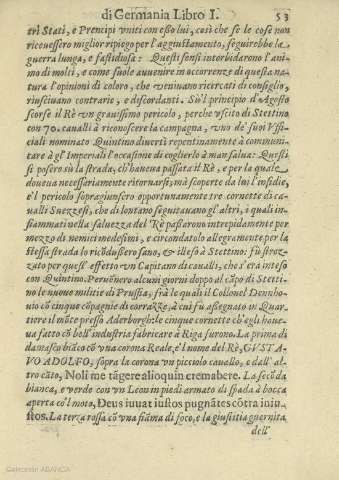 di Germania Libro I. 53
tri Stati, e Prencipi vniti con esso lui, così che se le cose non
riceuessero miglior ripiego per l'aggiustamento, seguirebbe la
guerra lunga, e fastidiosa: Questi sensi intorbidarono l'ani
mo di molti, e come suole auuenire in occorrenze di questa na
tura l'opinioni di coloro, che veniuano ricercati di consiglio,
riusciuano contrarie, e discordanti. Sù'l principio d'Agosto
scorse il Rè vn grauissimo pericolo, perche vscito di Stettino
con 70. caualli à riconoscere la campagna, vno de' suoi Vffi
ciali nominato Quintino diuertì repentinamente à communi
care à gl'Imperiali l'occasione di coglierlo à man salua: Questi
si posero sù la strada, ch'haueua passata il Rè, e per la quale
doueua necessariamente ritornarsi; mà scoperte da lui l'insidie,
e'l pericolo sopragiunsero opportunamente tre cornette di ca-
ualli Suezzesi, che di lontano seguitauano gl'altri, i quali in-
fiammati nella saluezza del Rè passarono intrepidamente per
mezzo di nemici medesimi, e circondatolo allegramente per la
stessa strada lo ricõdussero sano, & illeso à Stettino: fù stroz-
zato per quest' effetto vn Capitano di caualli, che s'era inteso
con Quintino. Peruẽnero alcuni giorni doppo al cãpo di Stetti-
no le nuoue militie di Prussia, frà le quali il Collonel Dennho-
uio cõ cinque cõpagnie di corazze, à cui fù assegnato in Quar-
tiere il mõte presso Aderborgh: le cinque cornette ch'egli haue-
ua fatto cõ bell' industria fabricare à Riga furono. La prima di
damasco biãco cõ vna corona Reale, e'l nome del Rè, GVSTA-
VO ADOLFO, sopra la corona vn piccolo cauallo, e dall' al-
tro cãto, Noli me tãgere alioquin cremabere. La secõda
bianca, e verde con vn Leon in piedi armato di spada à bocca
aperta co'l moto, Deus iuuat iustos pugnãtes cõtra iniu-
stos. La terza rossa cõ vna fiãma di foco, e la giustitia guernita
dell'
Colección ABANCA